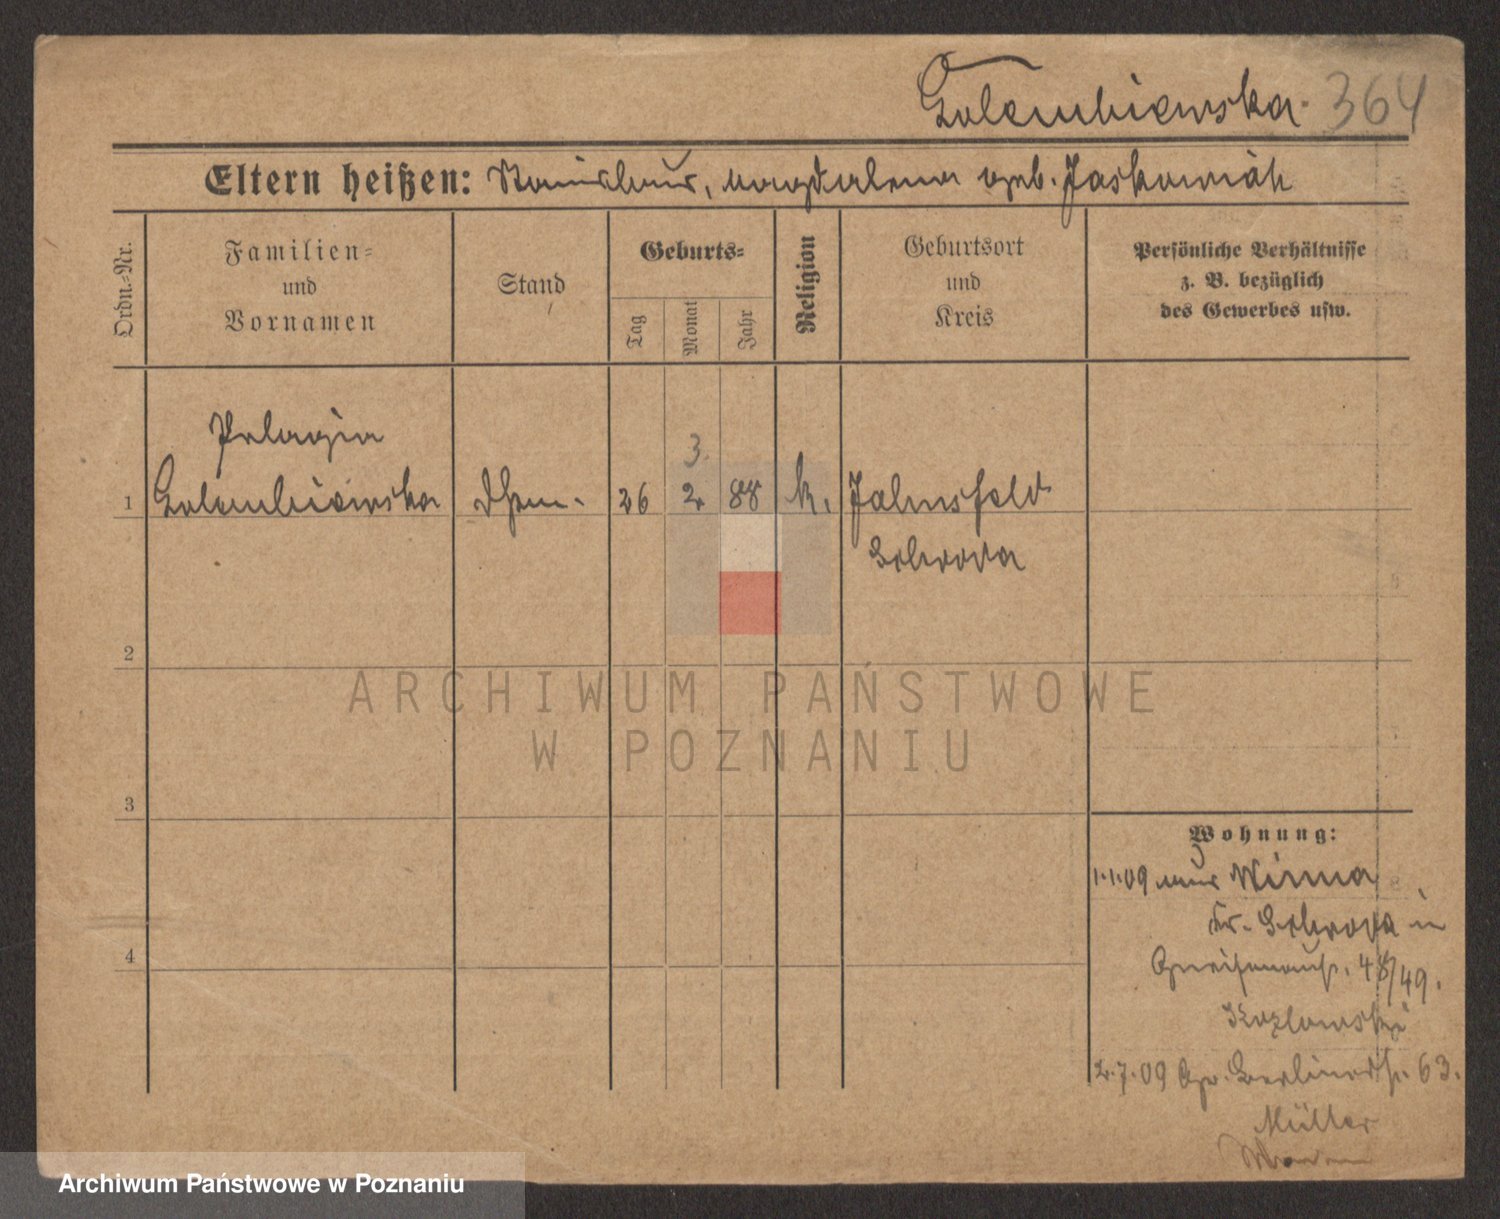 Golembiewska. 364
Eltern heißen: Stanislaus, Magdalena geb. Jaskowiak
Ordn.-Nr.
Familien-
und
Vornamen
Stand
Geburts-
Tag
Monat
Jahr
Religion
Geburtsort
und
Kreis
Persönliche Verhältnisse
z. B. bezüglich
des Gewerbes usw.
Pelagia
3.
1 Golembiewska 26 2 88 k. Jahnsfeld
Schroda
2
3
4
Wohnung:
1.1.09 aus Winna
Kr. Schroda in
Gneisenaustr. 48/49.
Kozlowski
2.7.09 Gr. Berlinerstr. 63.
Müller
ARCHIWUM PAŃSTWOWE
W POZNANIU
Archiwum Państwowe w Poznaniu